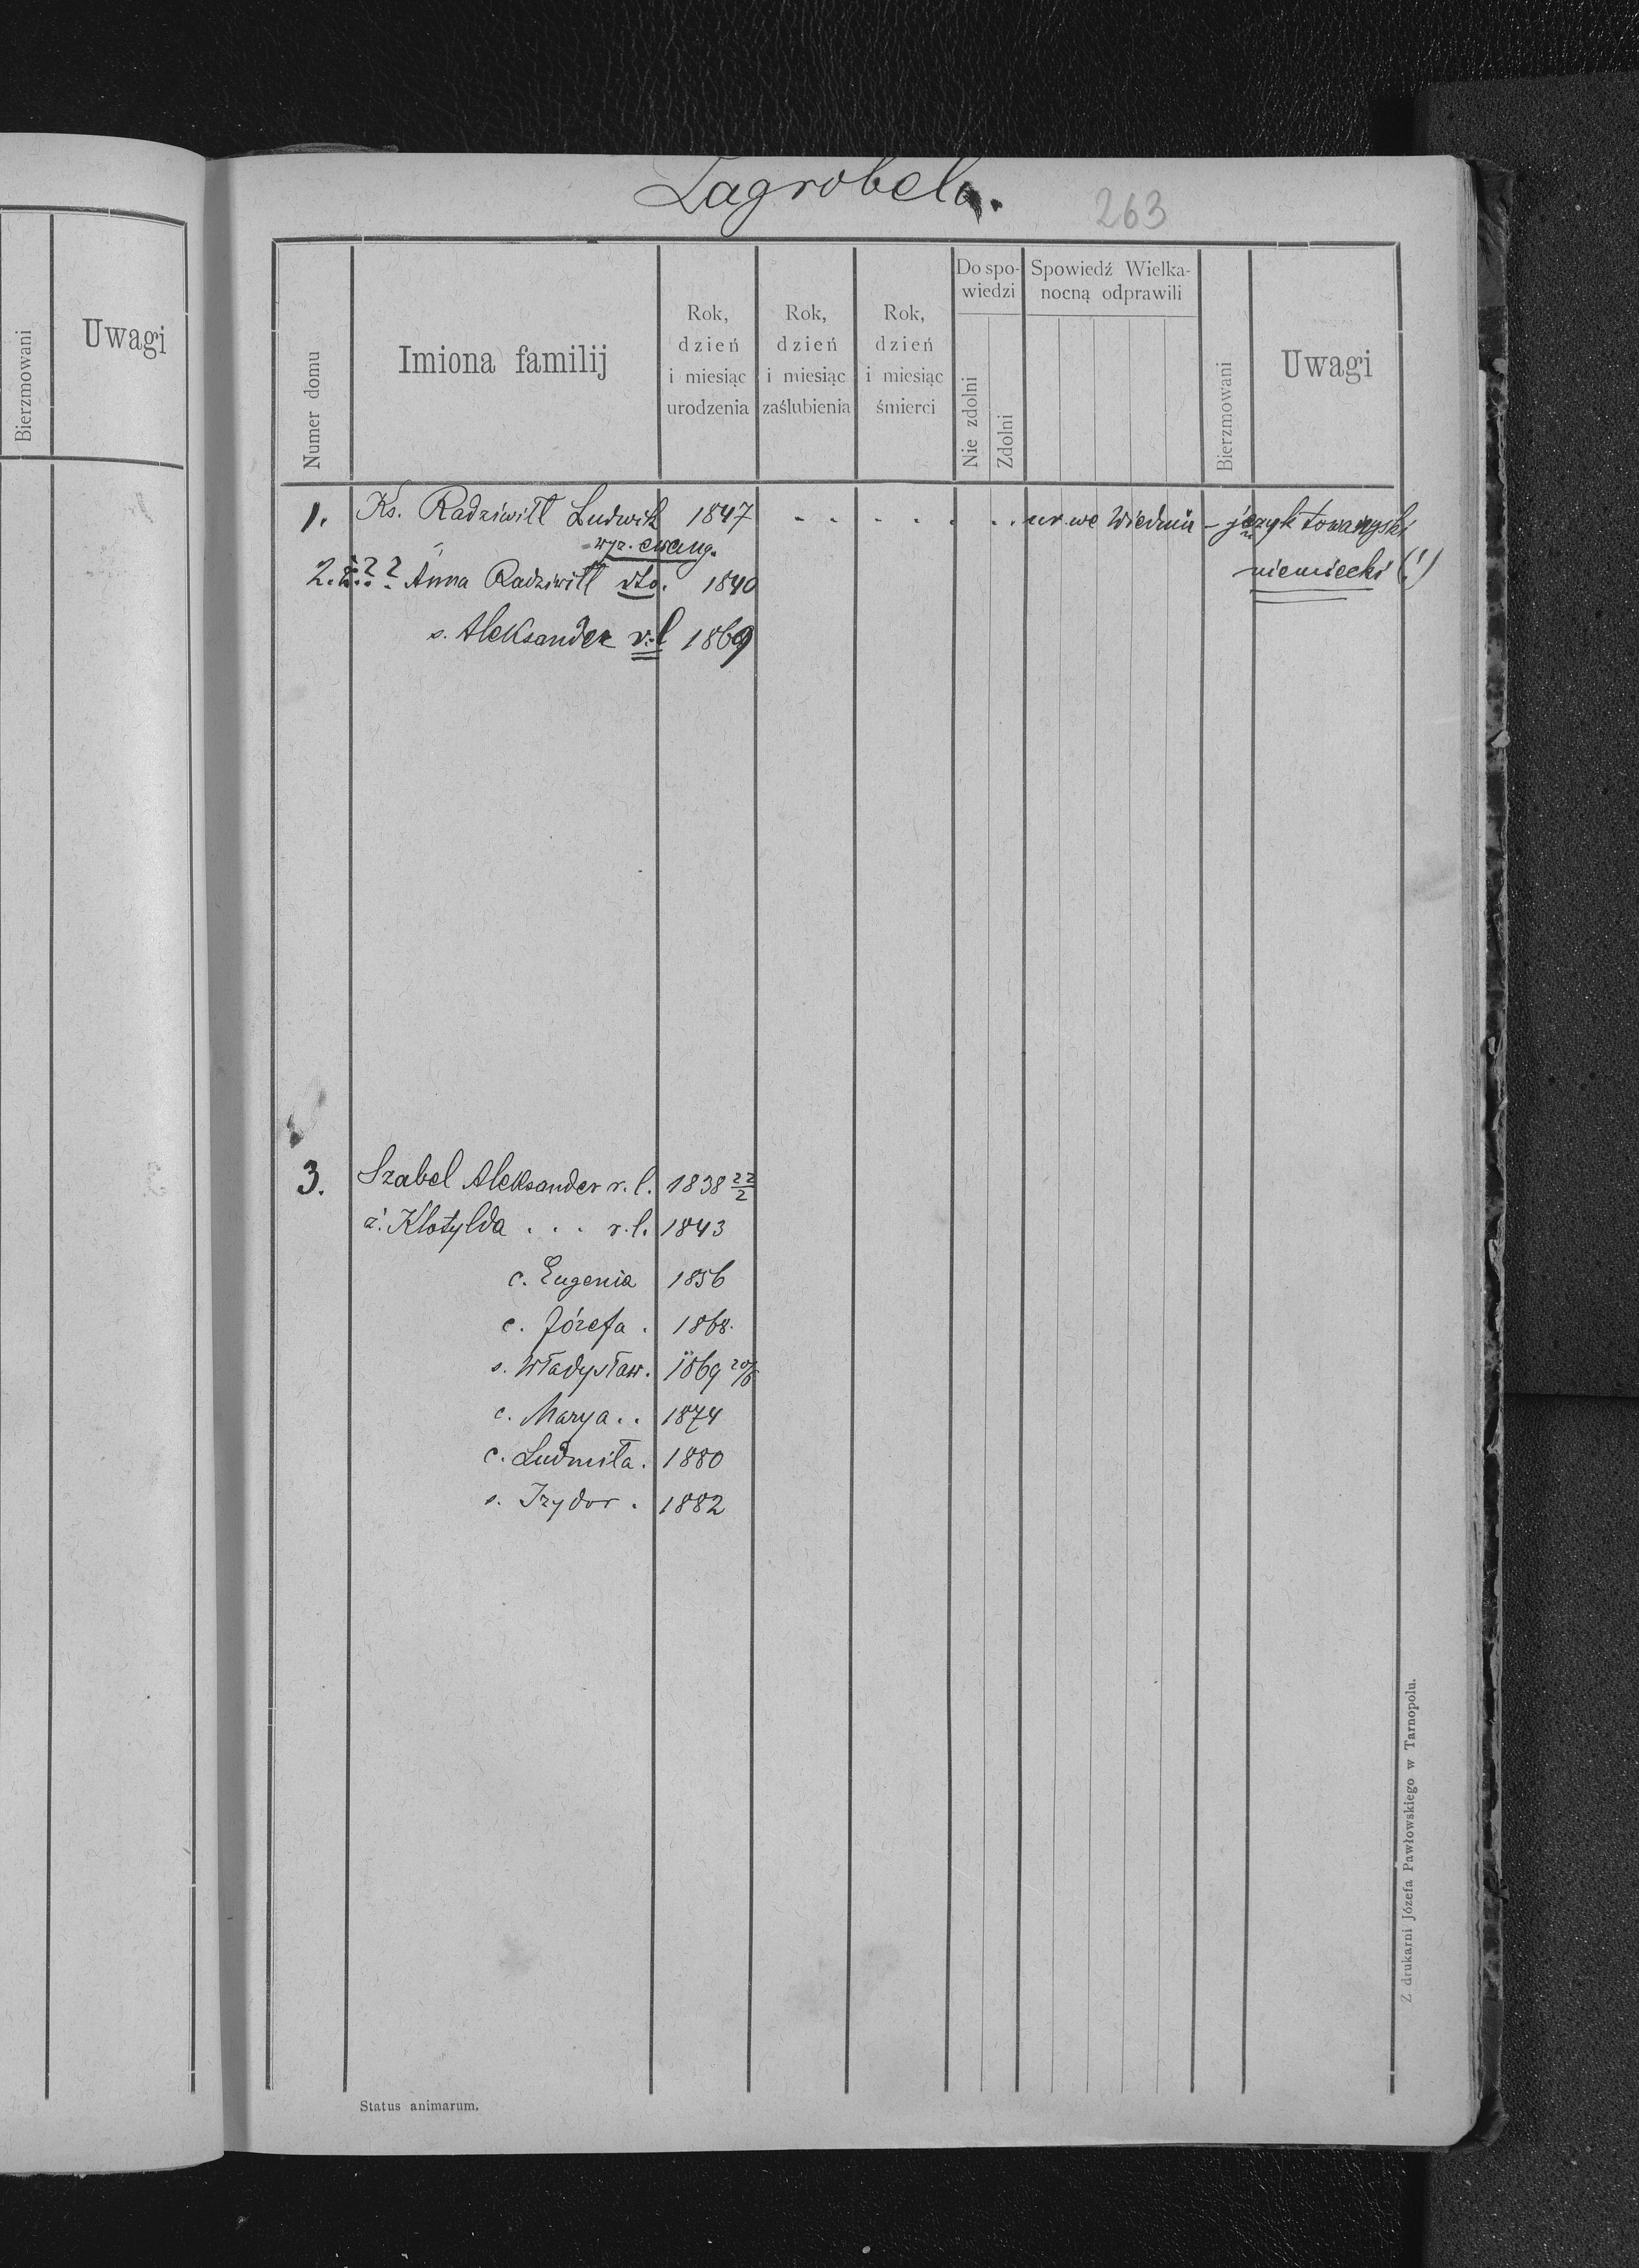 Zagrobela.
263
Bierzmowani
Uwagi
Numer domu
Imiona familij
Rok, dzień i miesiąc urodzenia
Rok, dzień i miesiąc zaślubienia
Rok, dzień i miesiąc śmierci
Do spowiedzi
Nie zdolni
Zdolni
Spowiedź Wielkanocną odprawili
Bierzmowani
Uwagi
1. Ks. Radziwiłł Ludwik 1847 - - - - . . . ur. we Wiedniu - język towarzyski
wyz. ewang.
niemiecki (!)
2. ż. ? ? Anna Radziwiłł dto. 1840
s. Aleksander r. l. 1869
3. Szabel Aleksander r. l. 1838 22/2
ż. Klotylda . . . r. l. 1843
c. Eugenia 1856
c. Józefa . 1868.
s. Władysław. 1869 20/6
c. Marya . . 1874
c. Ludmiła . 1880
s. Izydor . 1882
Z drukarni Józefa Pawłowskiego w Tarnopolu.
Status animarum.